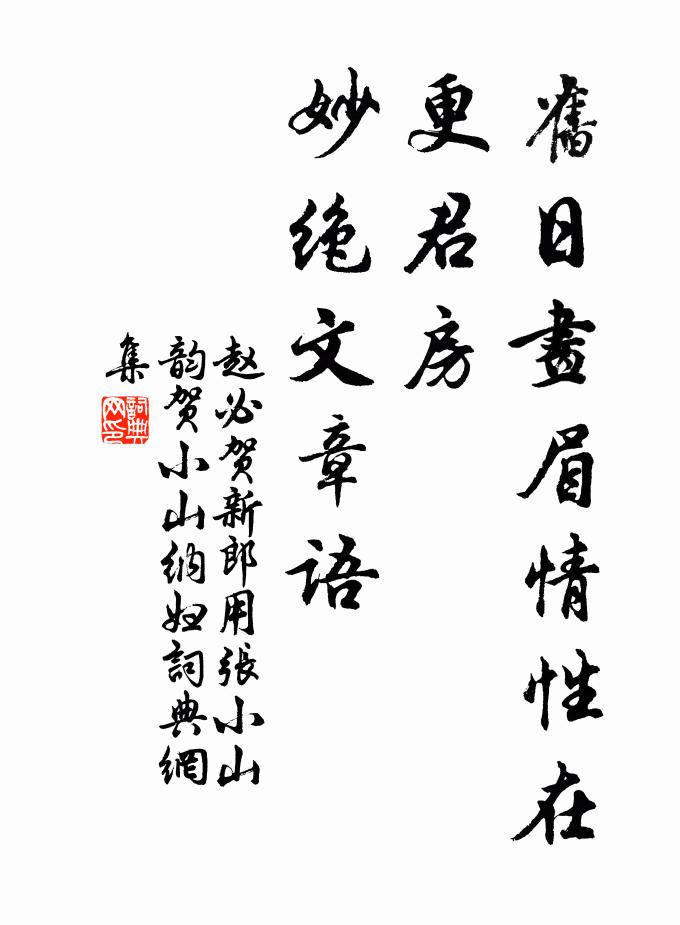 舊日畫眉情性在
更君房
妙绝文章语
赵必贺新郎用張小山
韵贺小山纳妞詞典網
集
詞典
网印